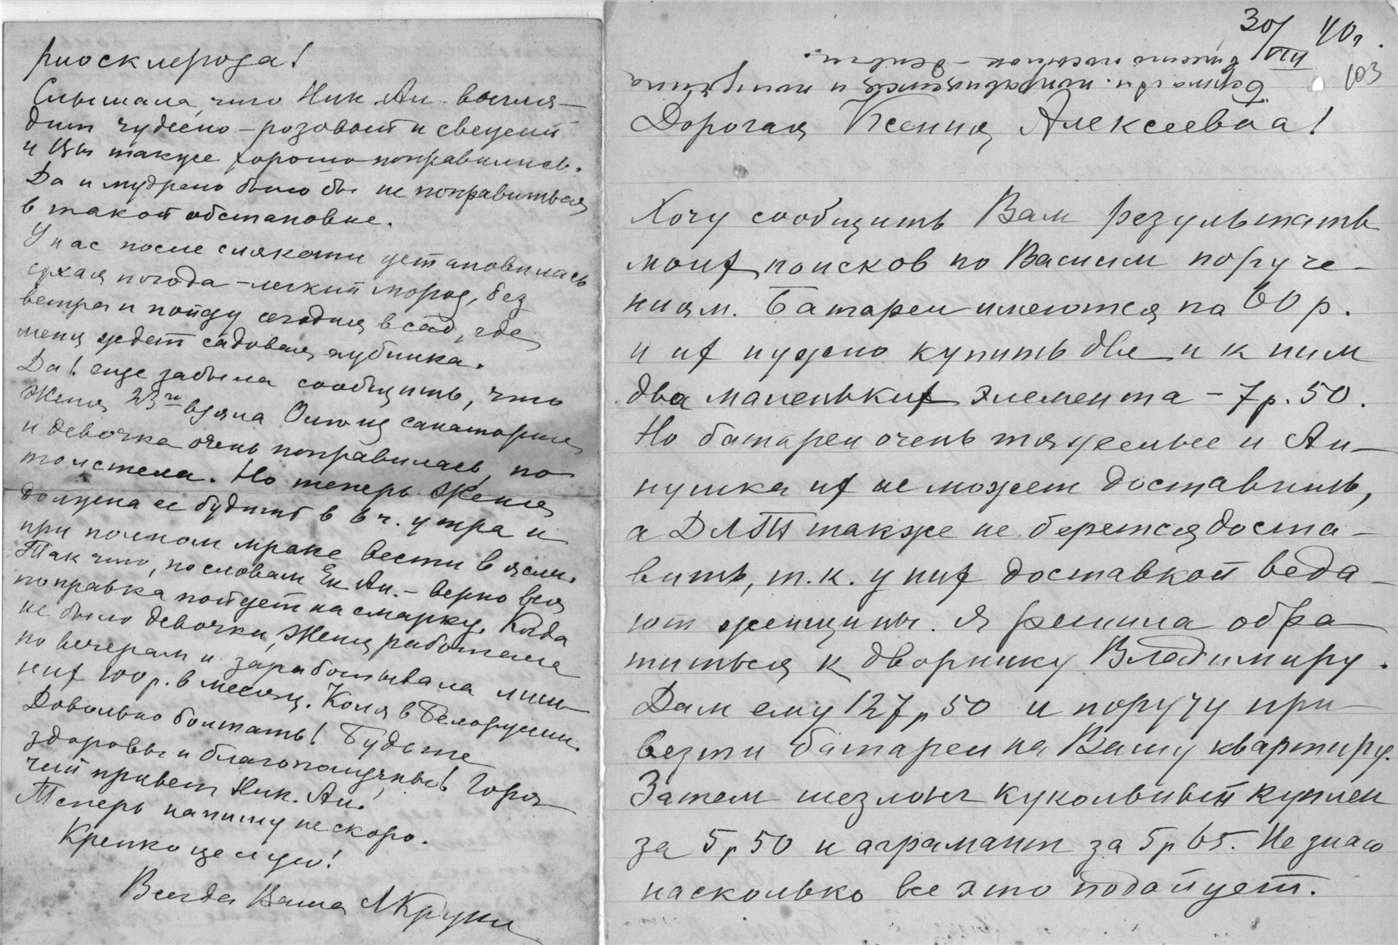 риосклероза!
Слышала, что Ник. Ал. выгля-
дит чудесно – розовый и свежий
и Вы также хорошо поправились.
Да и мудрено было бы не поправиться
в такой обстановке.
У нас после слякоти установилась
сухая погода – легкий мороз, без
ветра и пойду сегодня в сад, где
меня ждет садовая
Да! еще забыла сообщить, что
Женя 23го взяла Олю из санатория
и девочка очень поправилась, по-
толстела. Но теперь Женя
должна ее будить в 6 ч. утра и
при полном мраке вести в ясли.
Так что, по словам Ек. Ал. – верно вся
поправка пойдет на смарку. Когда
не было девочки, Женя работала
по вечерам и зарабатывала лиш-
них 100 р. в месяц. Коля в Белоруссии.
Довольно болтать! Будьте
здоровы и благополучны! Горя-
чий привет Ник. Ал.
Теперь напишу не скоро.
Крепко целую!
Всегда Ваша
30/VIII 40 г.
103
вместо посылок – деньги.
Дорогая Ксения Алексеевна!
Хочу сообщить Вам результаты
моих поисков по Вашим поруче-
ниям. Батареи имеются по 60 р.
и их нужно купить две и к ним
два маленьких элемента – 7 р. 50.
Но батареи очень тяжелые и Ан-
нушка их не может доставить,
а ДЛТ также не берется доста-
вить, т. к. у них доставкой веда-
ют женщины. Я решила обра-
титься к дворнику Владимиру.
Дам ему 127 р 50 и поручу при-
везти батареи на Вашу квартиру.
Затем шезлонг кукольный куплен
за 5 р 50 и аграмант за 5 р 65. Не знаю
насколько все это подойдет.